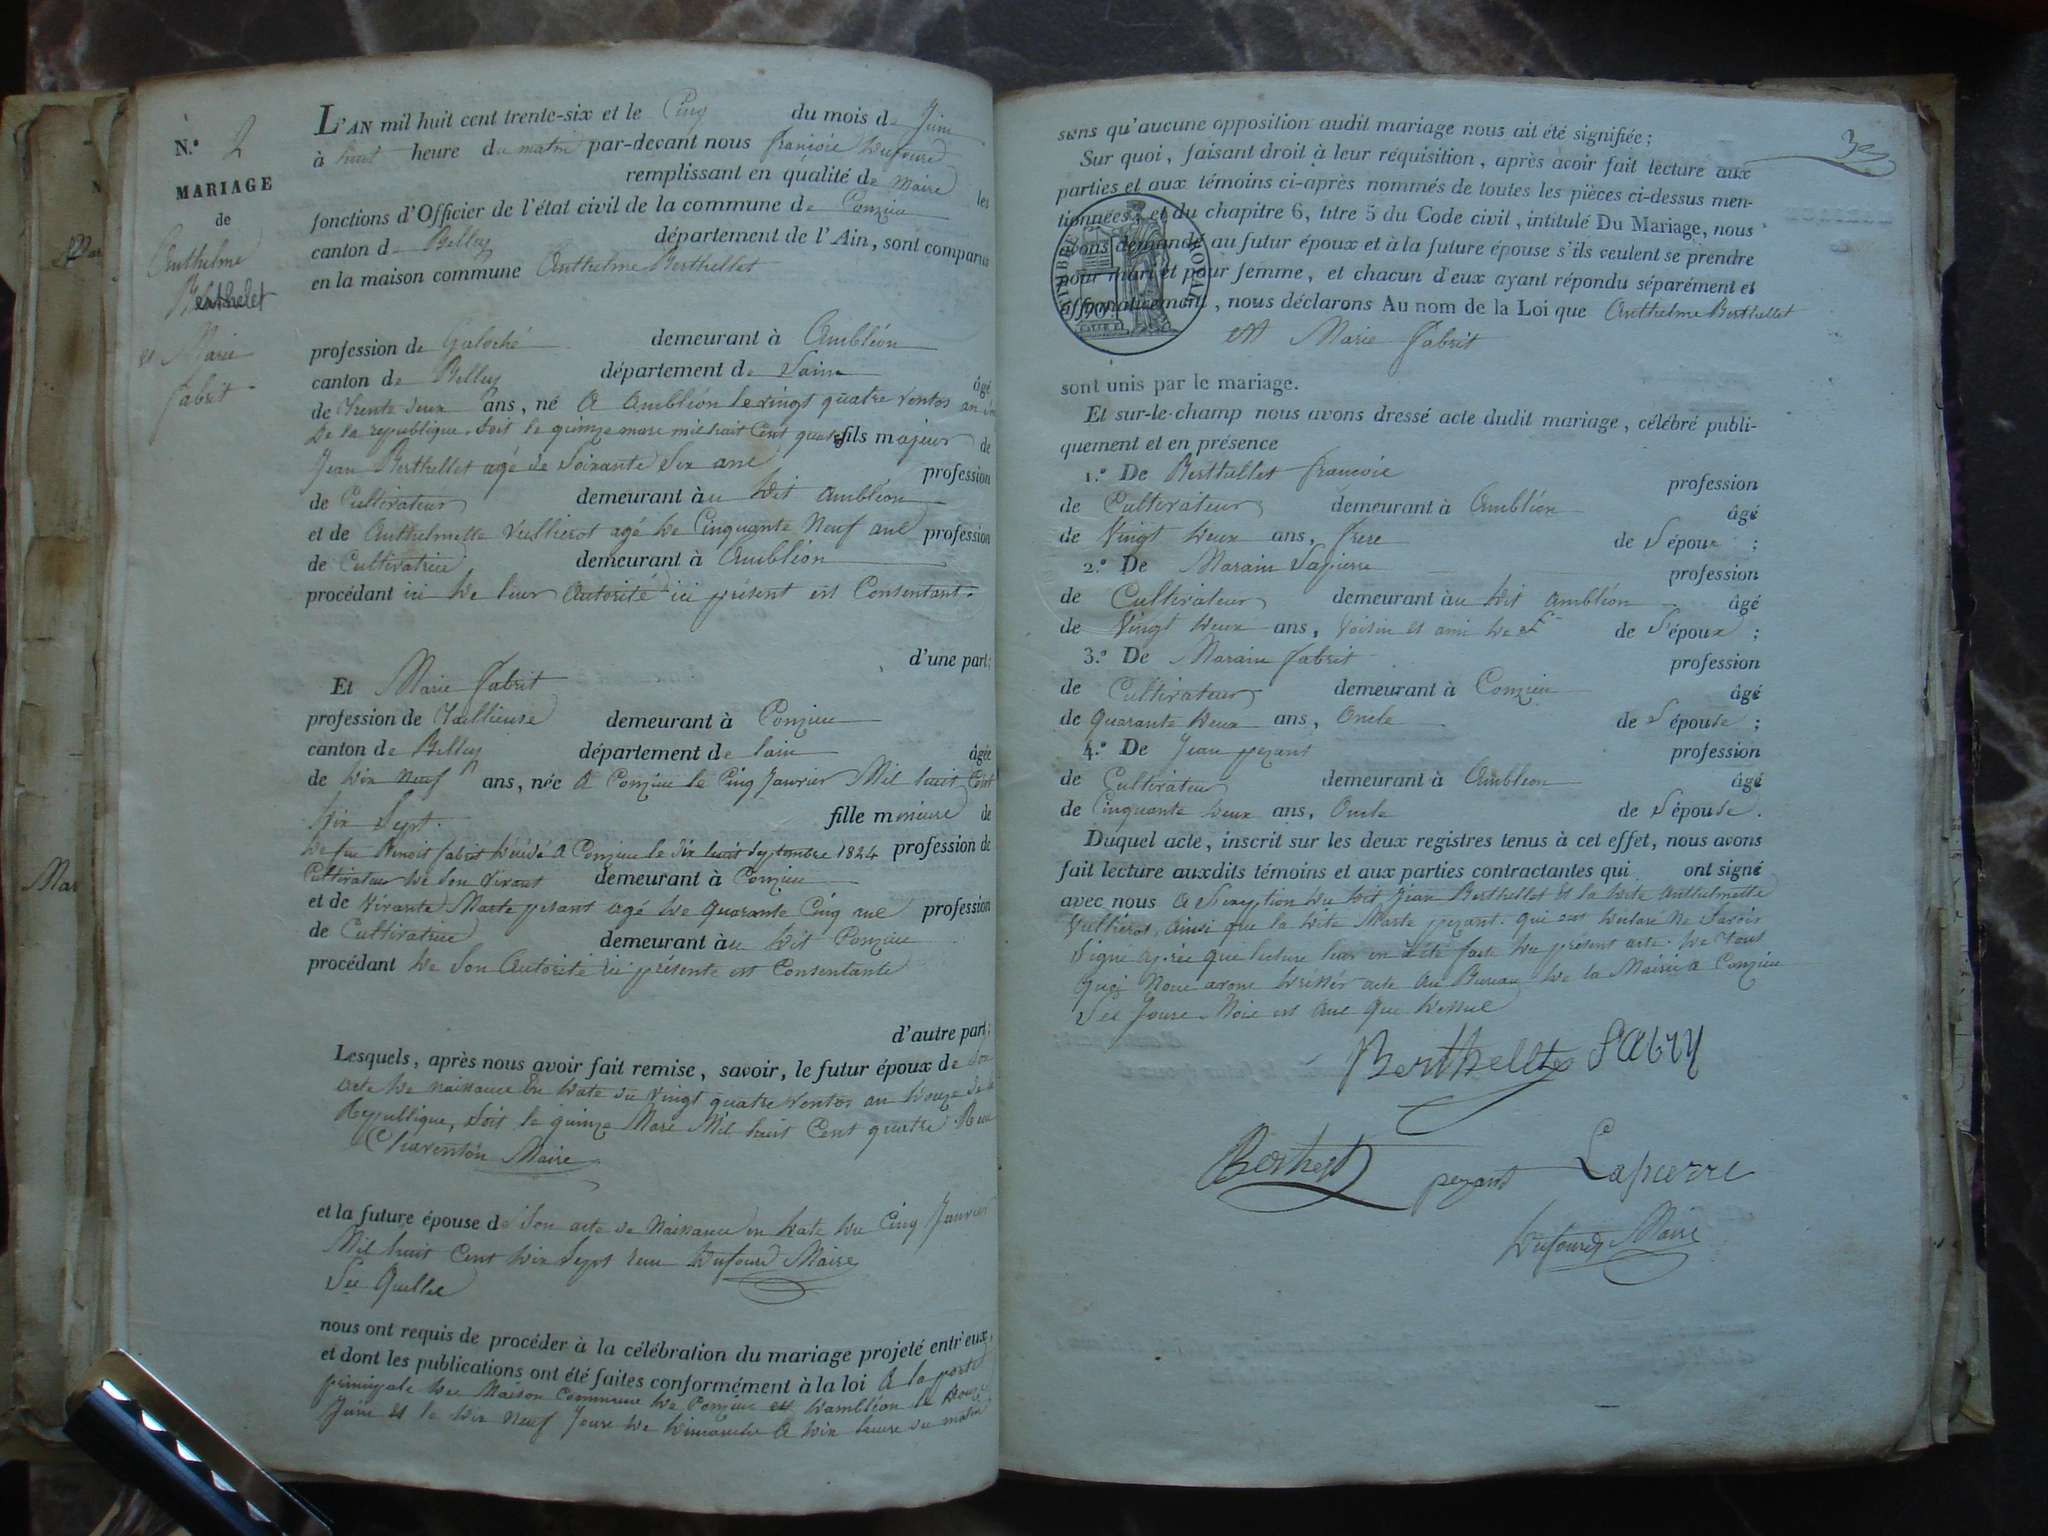 N.° 2
MARIAGE
de
Anthelme
Berthelet
et Marie
fabrit
L'AN mil huit cent trente-six et le Cinq du mois de Juin
à huit heure du matin par-devant nous françois Dufourd
remplissant en qualité de Maire les
fonctions d'Officier de l'état civil de la commune de Conzieu
canton de Belley département de l'Ain, sont comparus
en la maison commune Anthelme Berthellet
profession de Galoché demeurant à Ambléon
canton de Belley département de Lain âgé
de trente deux ans, né A Ambléon le vingt quatre ventos an
De la republique. soit le quinze mars mil huit Cent quatre fils majeur de
Jean Berthellet agé de Soixante Six ans profession
de Cultivateur demeurant àu dit Ambléon
et de Anthelmette Vullierot agé de Cinquante Neuf ans profession
de Cultivatrice demeurant à Ambléon
procédant ici de leur Autorité ici présent est Consentant.
d'une part;
Et Marie fabrit
profession de tallieuse demeurant à Conzieu
canton de Belley département de lain âgée
de dix neuf ans, née A Conzieu le Cinq Janvier Mil huit Cent
dix Sept. fille mineure de
de feu Benoit fabrit décédé A Conzieu le dix huit Septembre 1824 profession de
Cultivateur de Son vivant demeurant à Conzieu
et de vivante Marte pezant agé de quarante Cinq ans profession
de Cultivatrice demeurant àu dit Conzieu
procédant de Son Autorité ici présente est Consentante
d'autre part;
Lesquels, après nous avoir fait remise, savoir, le futur époux de Son
acte de naissance En date du vingt quatre ventos an douze de la
Republique, soit le quinze Mars Mil huit Cent quatre.
Charenton Maire
et la future épouse de Son acte de Naissance en date du Cinq Janvier
Mil huit Cent dix Sept Dufourd Maire
nous ont requis de procéder à la célébration du mariage projeté entr'eux,
et dont les publications ont été faites conformément à la loi A la porte
principale des Maison Commune de Conzieu et dambléon le douze
Juin et le dix neuf Jours de dimanche A dix heure du matin
3
sans qu'aucune opposition audit mariage nous ait été signifiée;
Sur quoi, faisant droit à leur réquisition, après avoir fait lecture aux
parties et aux témoins ci-après nommés de toutes les pièces ci-dessus men-
tionnées, et du chapitre 6, titre 5 du Code civil, intitulé Du Mariage, nous
avons demandé au futur époux et à la future épouse s'ils veulent se prendre
pour mari et pour femme, et chacun d'eux ayant répondu séparément et
affirmativement, nous déclarons Au nom de la Loi que Anthelme Berthellet
et Marie fabrit
TIMBRE ROYAL
sont unis par le mariage.
Et sur-le-champ nous avons dressé acte dudit mariage, célébré publi-
quement et en présence
1.° De Berthellet francois profession
de Cultivateur demeurant à Ambléon âgé
de Vingt deux ans, frere de L'époux ;
2.° De Marain Lapierre profession
de Cultivateur demeurant àu dit Ambléon âgé
de Vingt deux ans, voisin et ami de de L'époux ;
3.° De Marain fabrit profession
de Cultivateur demeurant à Conzieu âgé
de quarante deux ans, Oncle de L'épouse ;
4.° De Jean pezant profession
de Cultivateur demeurant à Ambléon âgé
de Cinquante deux ans, Oncle de L'épouse.
Duquel acte, inscrit sur les deux registres tenus à cet effet, nous avons
fait lecture auxdits témoins et aux parties contractantes qui ont signé
avec nous A L'exception du dit Jean Berthellet Et la dite Anthelmette
Vullierot, ainsi que la dite Marte pezant. qui ont declaré Ne Savoir
Signé après que lecture leur en a été faite du présent acte. de tous
quoi Nous avons dressér acte Au Bureau de la Mairie a Conzieu
Les Jours Mois et Ans que dessus
Berthellet FAbry
Berthet pezant Lapierre
Dufourd Maire